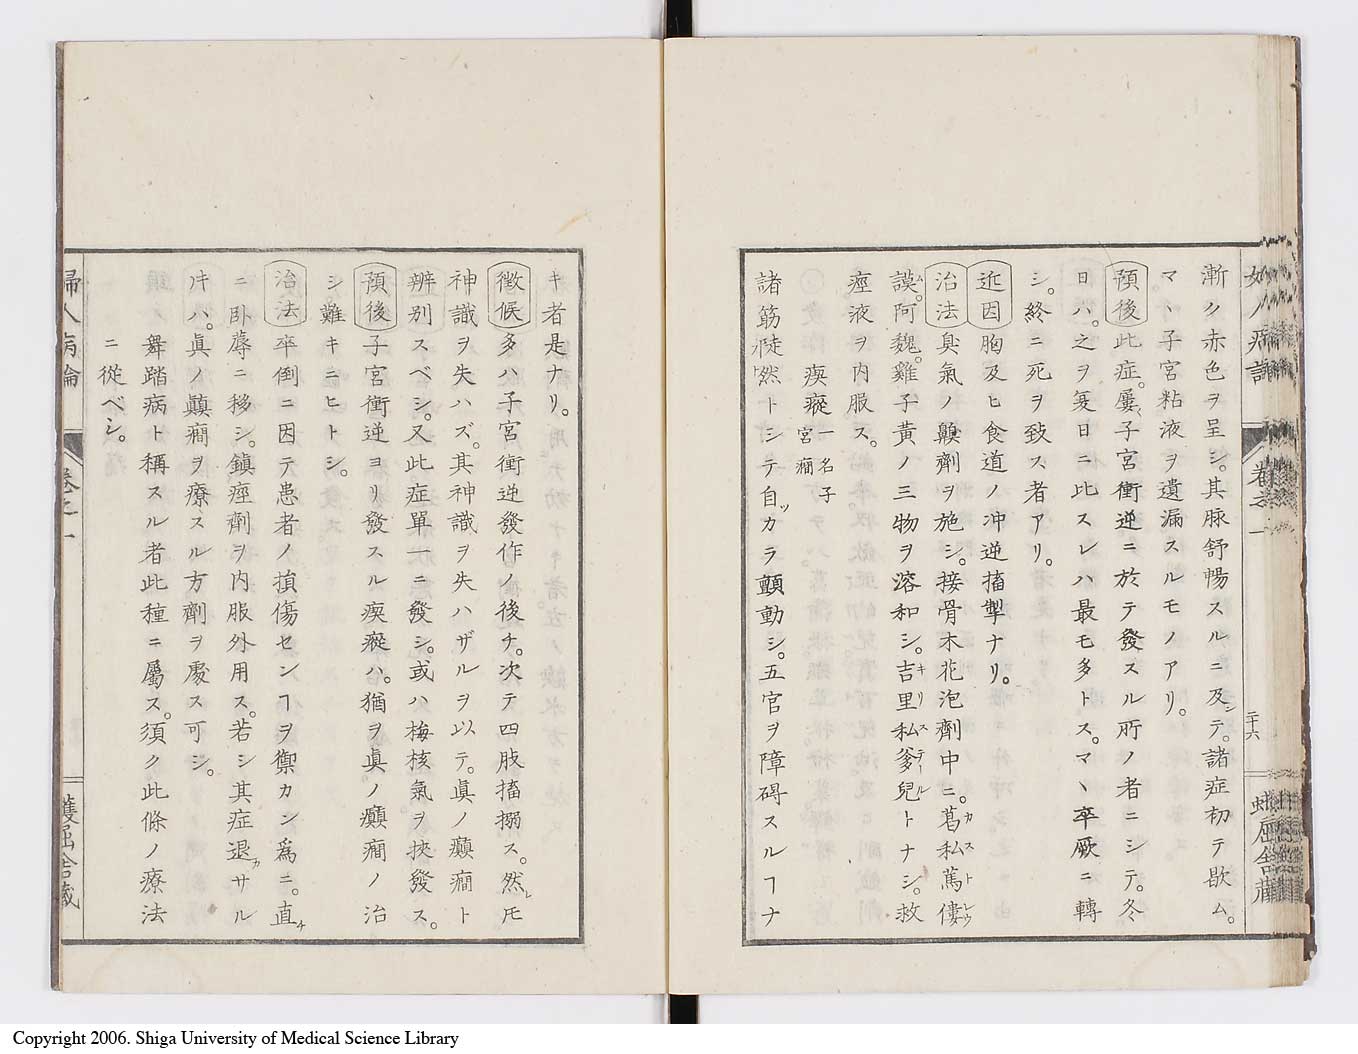 漸ク赤色ヲ呈シ。其脉舒暢スルニ及テ。諸症初テ歇ム。
マヽ子宮粘液ヲ遺漏スルモノアリ。
預後 此症。屢子宮衝逆ニ於テ發スル所ノ者ニシテ。冬
日ハ。之ヲ夏日ニ比スレハ最モ多トス。マヽ卒厥ニ轉
シ。終ニ死ヲ致ス者アリ。
近因 胸及ヒ食道ノ冲逆搐掣ナリ。
治法 臭氣ノ齅劑ヲ施シ。接骨木花泡劑中ニ。葛私蔦僂
謨。阿魏。雞子黄ノ三物ヲ溶和シ。吉里私爹兒トナシ。救
痙液ヲ内服ス。
瘈瘲 一名子宮癎
諸筋倐然トシテ自カラ顫動シ。五官ヲ障碍スルヿナ
キ者是ナリ。
徴候 多ハ子宮衝逆發作ノ後チ。次テ四肢搐搦ス。然レ𪜈
神識ヲ失ハズ。其神識ヲ失ハザルヲ以テ。眞ノ癲癎ト
辨別スベシ。又此症單一ニ發シ。或ハ梅核氣ヲ挾發ス。
預後 子宮衝逆ヨリ發スル瘈瘲ハ。猶ヲ眞ノ癲癎ノ治
シ難キニヒトシ。
治法 卒倒ニ因テ患者ノ損傷センヿヲ禦カン爲ニ。直チ
ニ卧蓐ニ移シ。鎭痙劑ヲ内服外用ス。若シ其症退カサル
𪜈ハ。眞ノ顚癎ヲ療スル方劑ヲ處ス可シ。
舞踏病ト稱スル者此種ニ屬ス。須ク此條ノ療法
ニ從ベシ。
婦人病論
卷之一
三十六
Copyright 2006. Shiga University of Medical Science Library